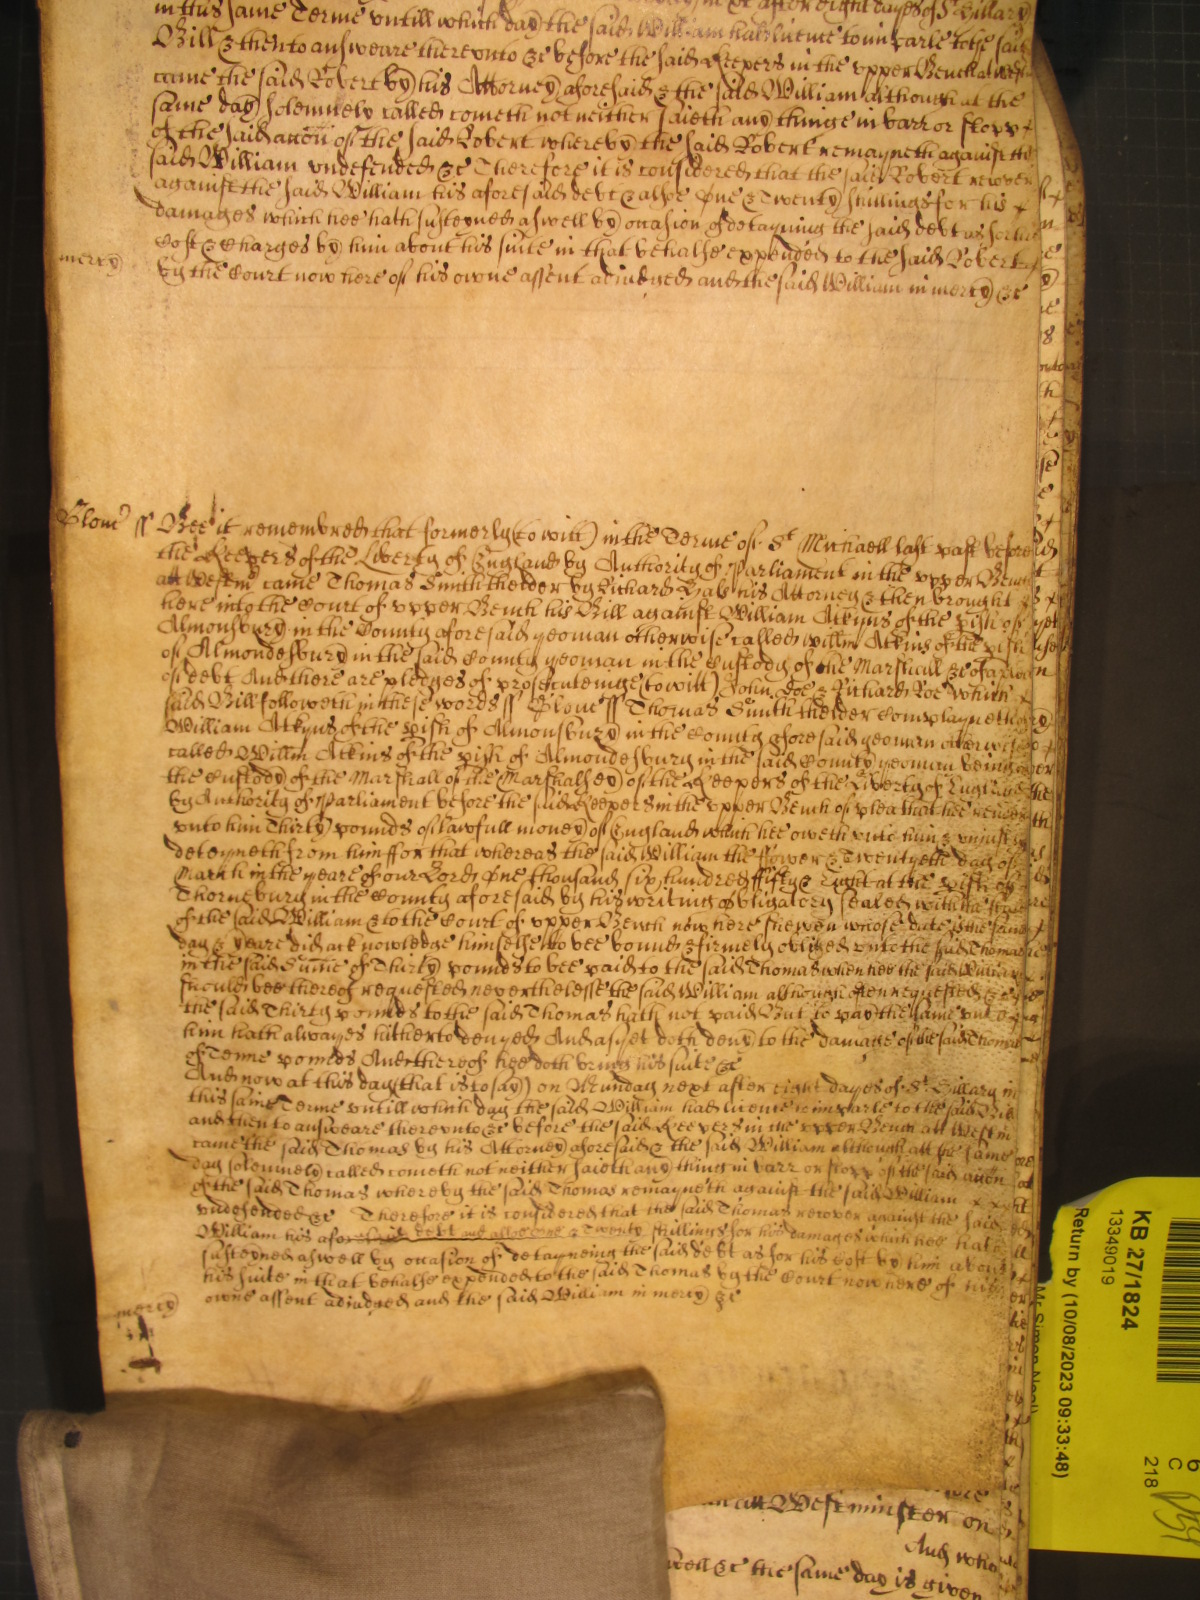 in this same Terme untill which day the said William had licence to imparle to the said
Bill & then to answeare thereunto &c before the said Keepers in the upper Bench att Westm
came the said Robert by his Attorney aforesaid & the said William although at the
same day solemnely called cometh not neither saieth any thinge in barr or stopp
of the said accon of the said Robert whereby the said Robert remayneth against the
said William undefended &c Therefore it is considered that the said Robert recover
against the said William his aforesaid debt & alsoe One & Twenty shillings for his
damages which hee hath susteyned aswell by occasion of detayning the said debt as for his
Cost & Charges by him about his suite in that behalfe expended to the said Robert
mercy by the Court now here of his owne assent adjudged and the said William in mercy &c
Glouc ss Bee it remembred that formerly (to witt) in the Terme of St Michaell last past before
the Keepers of the Liberty of England by Authority of Parliament in the upper Bench
att Westm came Thomas Smith the elder by Richard Hals his Attorney & then brought
here into the Court of upper Bench his Bill against William Atkyns of the pish of
Almonsbury in the County aforesaid yeoman otherwise called Willm Atkins of the pish
of Almondesbury in the said County yeoman in the Custody of the Marshall &c of a plea
of debt And there are pledges of prosecuteinge (to witt) John Doe & Richard Roe Which
said Bill followeth in these words ss Glouc ss Thomas Smith the elder Complayneth
William Atkyns of the pish of Almonsbury in the County aforesaid yeoman otherwise
called Willm Atkins of the pish of Almondesbury in the said County yeoman being
the Custody of the Marshall of the Marshalsey of the Keepers of the Liberty of England
by Authority of Parliament before the said Keepers in the upper Bench of plea that hee render
unto him Thirty pounds of lawfull money of England which hee oweth unto him & unjustly
deteyneth from him ffor that whereas the said William the ffower & Twentyeth day of
March in the yeare of our Lord One thousand six hundred ffifty & eight at the pish of
Thornebury in the County aforesaid by his writing obligatory sealed with the seale
of the said William & to the Court of upper Bench now here shewen whose date is the same
day & yeare did acknowledge himselfe to bee bound & firmely obliged unto the said Thomas
in the said Sume of Thirty pounds to bee paid to the said Thomas when hee the said William
should bee thereof requested neverthelesse the said William although often requested &c
the said Thirty pounds to the said Thomas hath not paid But to pay the same unto
him hath alwayes hitherto denyed And as yet doth deny to the damage of the said Thomas
of Tenne pounds And thereof hee doth bring his suite &c
And now at this day (that is to say) on Munday next after eight dayes of St Hillary in
this same Terme untill which day the said William had licence to imparle to the said Bill
and then to answeare thereunto &c before the said Keepers in the upper Bench att Westm
came the said Thomas by his Attorney aforesaid & the said William although att the same
day solemnely called cometh not neither saieth any thing in barr or stopp of the said accon
of the said Thomas whereby the said Thomas remayneth against the said William
undefended &c Therefore it is considered that the said Thomas recover against the said
William his aforesaid debt and alsoe one & Twenty shillings for his damages which hee hath
susteyned aswell by occasion of detayneing the said debt as for his Cost by him about
his suite in that behalfe expended to the said Thomas by the Court now here of his
mercy owne assent adjudged and the said William in mercy &c
Westminster on
And
the same day is given
KB 27/1824
13349019
Return by (10/08/2023 09:33:48)
C
218